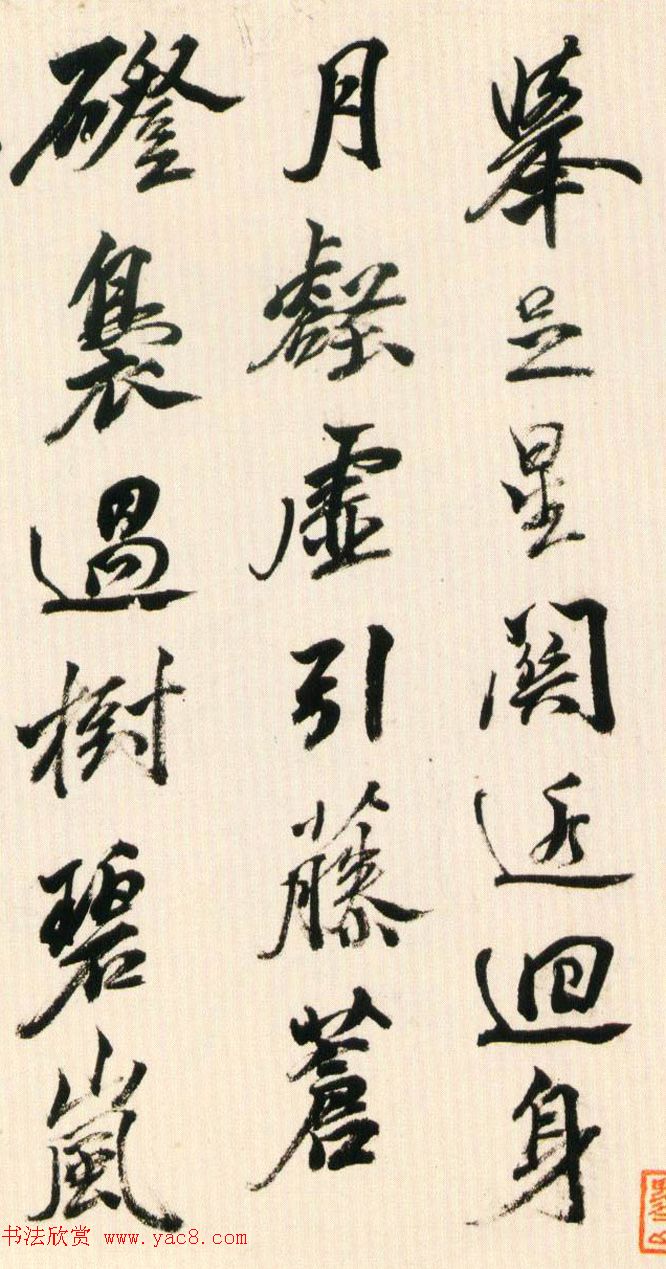 舉足星關近迴身
月壑虛引藤蒼
磴裊過樹碧嵐
书法欣赏 www.yac8.com